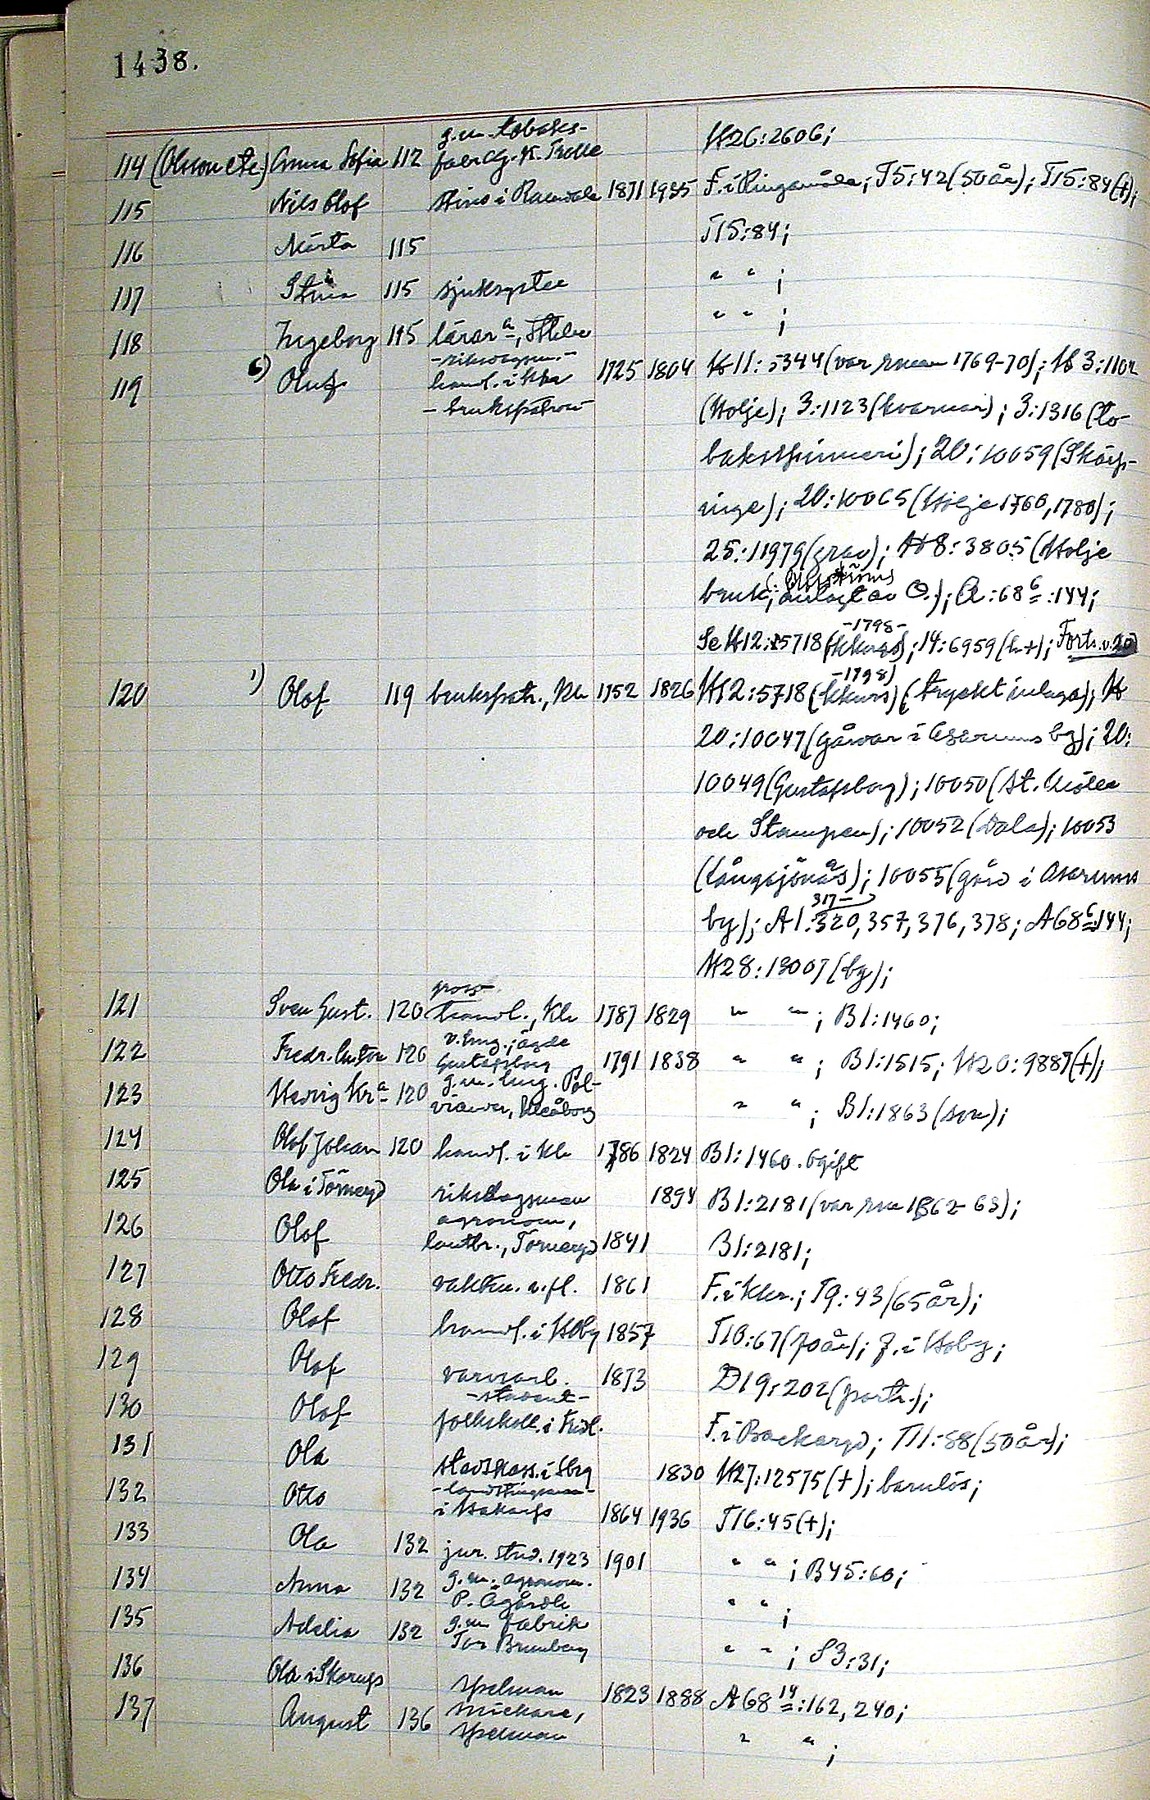 1438.
114 (Olsson etc.) Anna Sofia 112 g.m. tobaks- H26:2606;
fabr.
115 Nils Olof i 1871 1935 F. i Ringamåla; T5:42 (50 år); T15:84 (+);
116 Märta 115 T15:84;
117 Stina 115 sjuksyster " " ;
118 Ingeborg 115 lärar a, " " ;
119 6) Oluf -riksdagsm.- 1725 1804 H11:5344 (var rman 1769-70); H 3:1102
handl. i Khn (Holje); 3:1123 (kvarnar); 3:1316 (to-
- brukspatron
baksspinneri); 20:10059 (Skärp-
inge); 20:10065 (Holje 1760, 1780);
25:11979 (grav); H8:3805 (Holje
bruk, anlagt av O.); A:68 6:144;
Olofströms
-1798-
Se H12:5718 (konkurs); 14:6959 (h+); Forts. n. 20)
120 1) Olof 119 brukspatr., Khn 1752 1826 H12:5718 (konkurs) (tryckt inlaga); H
-1798)
20:10047 (gårdar i Asarums by); 20:
10049 (Gustafsborg); 10050 (St. Mölla
och Stampen); 10052 (Dala); 10053
(Långasjönäs); 10055 (gård i Asarums
317-
by); A1:320, 357, 376, 378; A68 6:144;
H28:13007 (by);
121 Sven Gust. 120 gross- 1787 1829 " " ; B1:1460;
handl., Khn
122 Fredr. Anton 120 v. häg.; ägde 1791 1838 " " ; B1:1515; H20:9887 (+);
Gustafsborg
123 Hedvig Kr a 120 g.m. " " ; B1:1863 (son);
124 Olof Johan 120 handl. i Khn 1786 1824 B1:1460. ogift
125 Ola i Törneryd riksdagsman 1894 B1:2181 (var rman 1862-63);
126 Olof agronom, 1841 B1:2181;
lantbr., Törneryd
127 Otto Fredr. vaktm. a. fl. 1861 F. i Khn.; T9:43 (65 år);
128 Olof handl. i Hoby 1857 T10:67 (70 år); F. i Hoby;
129 Olof varvsarb. 1873 D19:202 (portr.);
130 Olof -student- F. i Backaryd; T11:88 (50 år);
folkskoll. i
131 Ola stadskass. i Sbg 1830 H27:12575 (+); barnlös;
132 Otto -landstingsman- 1864 1936 T16:45 (+);
i
133 Ola 132 jur. stud. 1923 1901 " " ; B45:60;
134 Anna 132 g.m. agronom. " " ;
P. Ågårdh
135 Adelia 132 g.m. fabrik " " ; S3:31;
Tor Brunberg
136 Ola i Skarup spelman 1823 1888 A68 14:162, 240;
137 August 136 snickare, " " ;
spelman